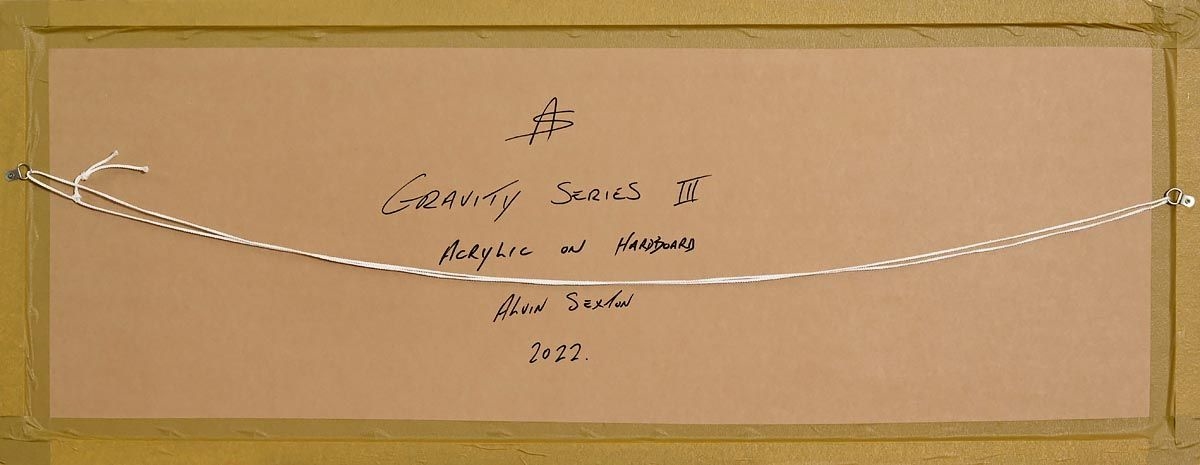 AS
GRAVITY SERIES III
ACRYLIC ON HARDBOARD
ALVIN SEXTON
2022.